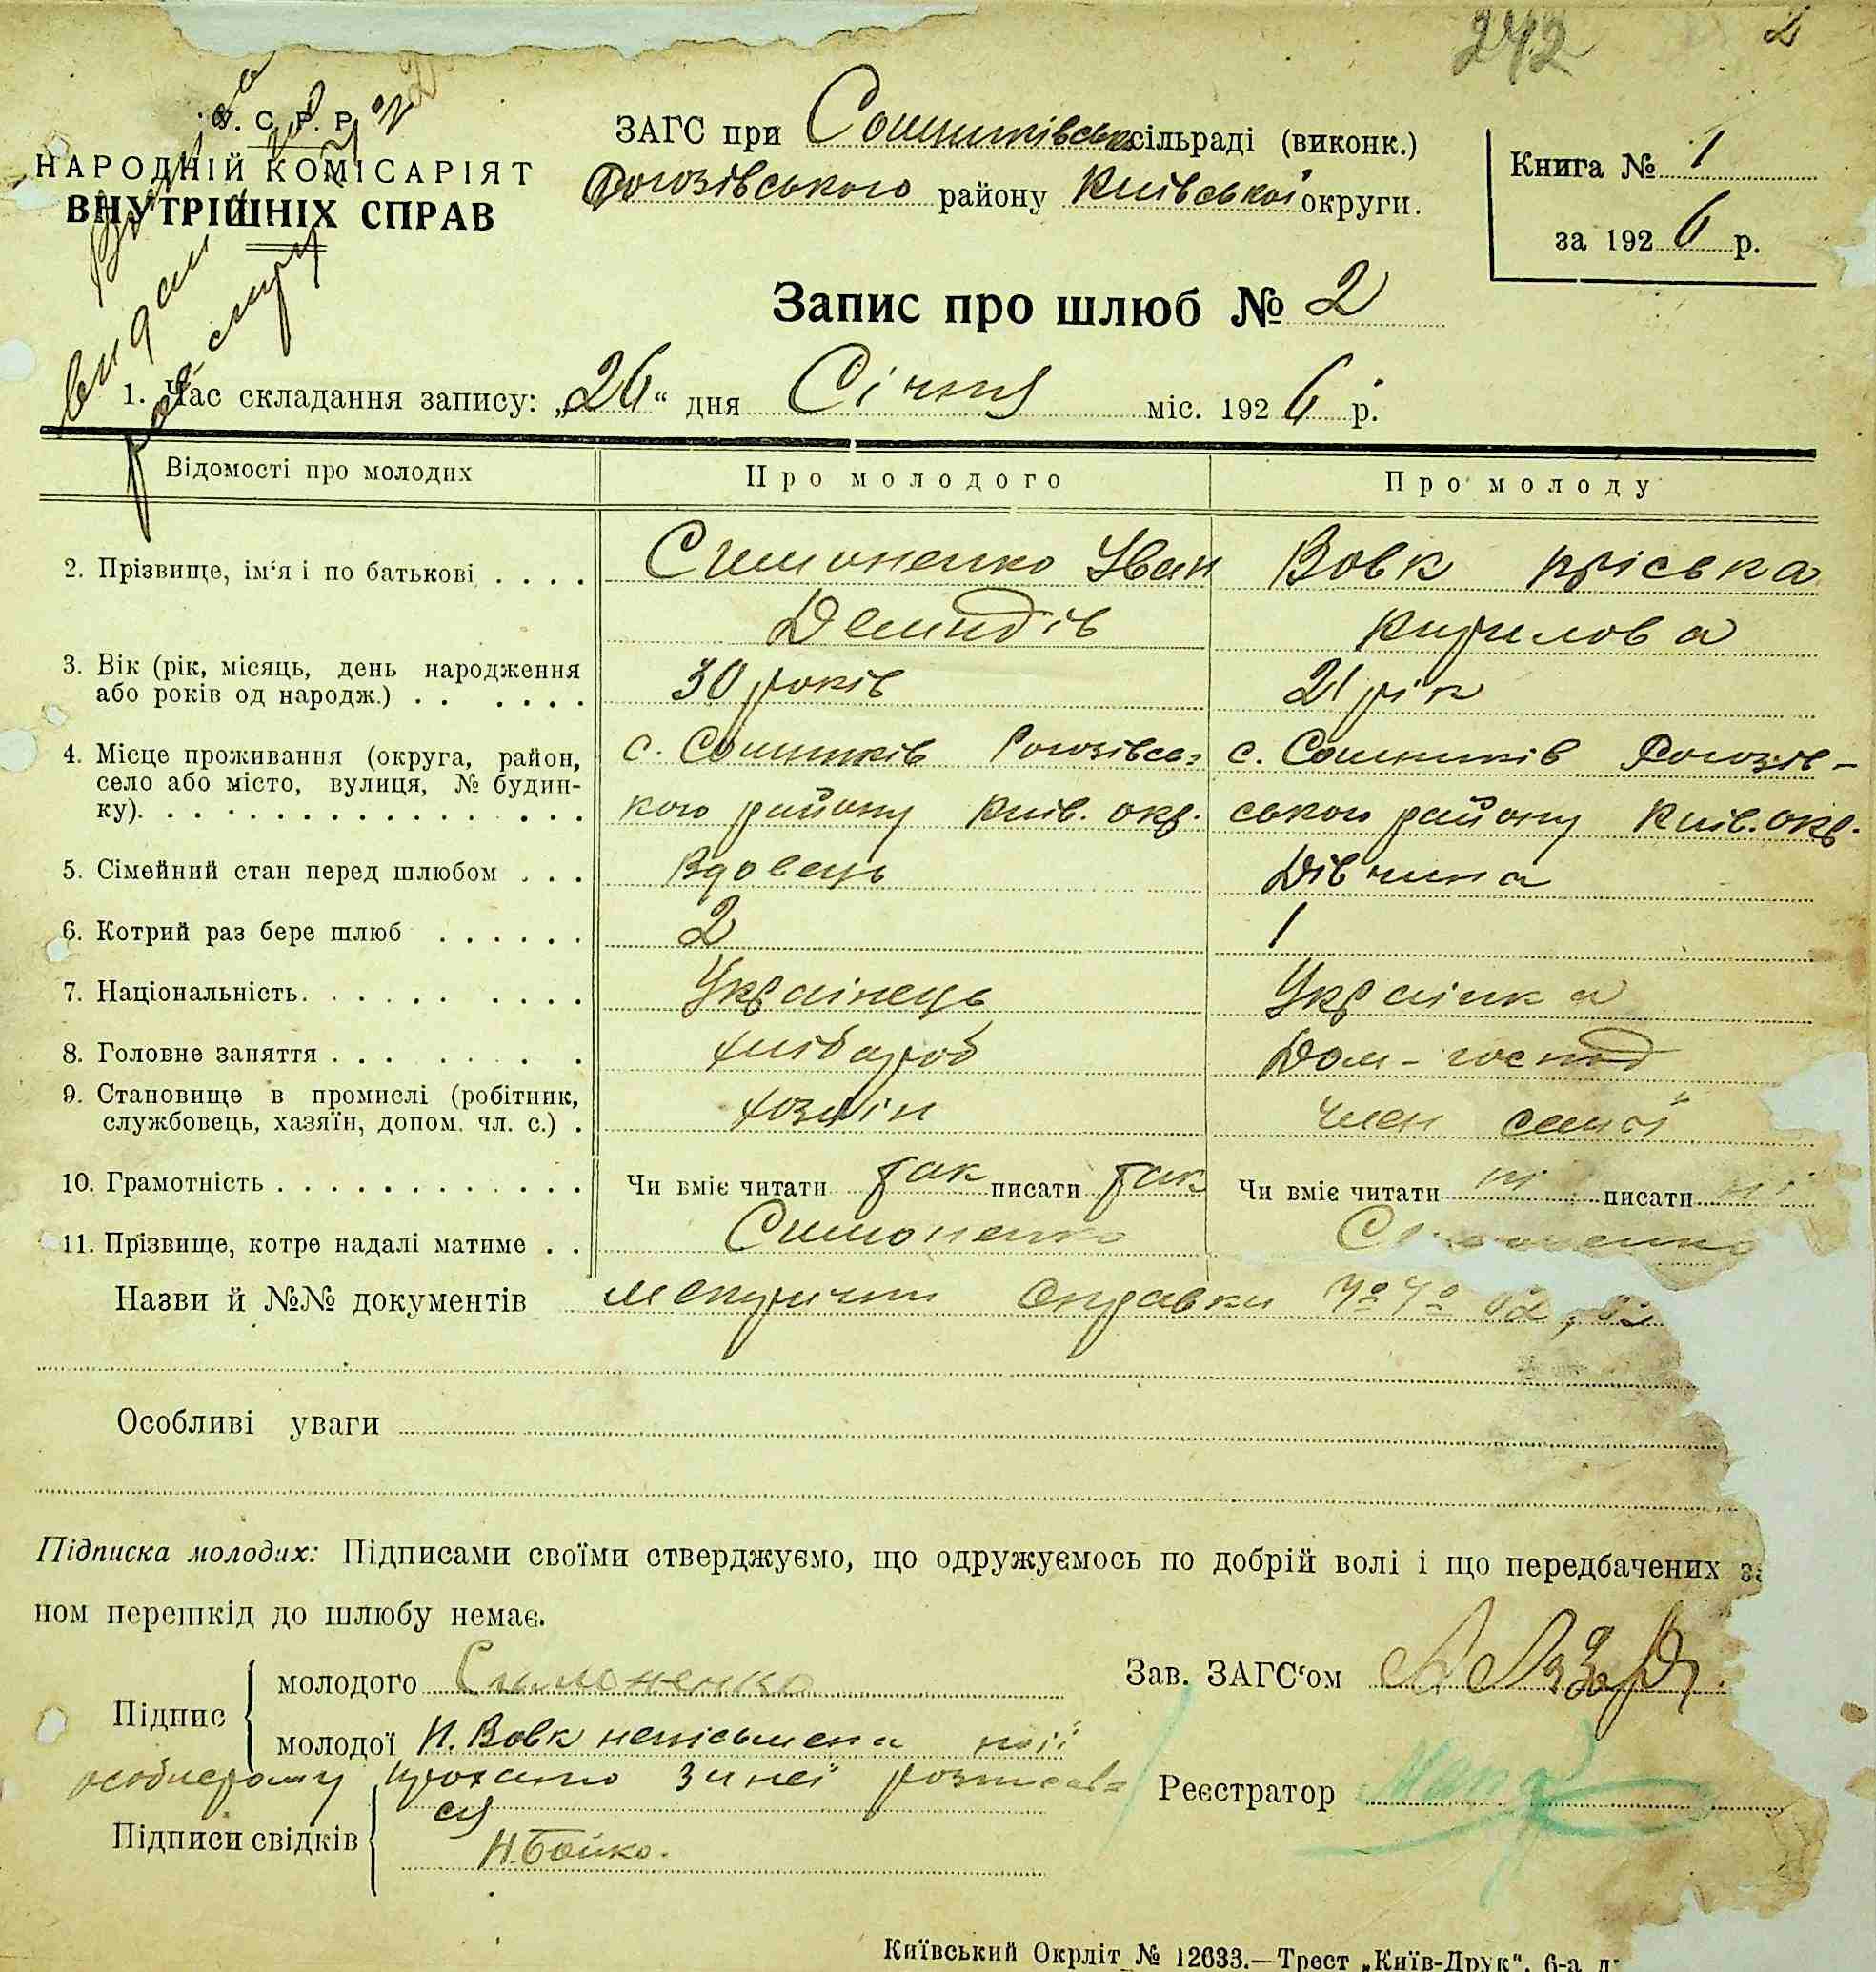 242 2
У. С. Р. Р.
НАРОДНІЙ КОМІСАРІЯТ
ВНУТРІШНІХ СПРАВ
ЗАГС при Сошниківськ сільраді (виконк.)
Рогозівського району Київської округи.
Книга № 1
за 1926 р.
Запис про шлюб № 2
1. Час складання запису: „26“ дня Січня міс. 1926 р.
Відомості про молодих Про молодого Про молоду
2. Прізвище, ім‘я і по батькові . . . . Симоненко Іван Вовк Пріська
Демидів Кирилова
3. Вік (рік, місяць, день народження
або років од народж.) . . . . . . 30 років 21 рік
4. Місце проживання (округа, район, с. Сошників Рогозівсь= с. Сошників Рогозів-
село або місто, вулиця, № будин-
ку). . . . . . . . . . . . . . . . кого району Київ. окр. ського району Київ. окр.
5. Сімейний стан перед шлюбом . . . Вдовець Дівчина
6. Котрий раз бере шлюб . . . . . . 2 1
7. Національність. . . . . . . . . . Українець Українка
8. Головне заняття . . . . . . . хлібороб Дом-господ
9. Становище в промислі (робітник,
службовець, хазяїн, допом. чл. с.) . хозяїн член семї
10. Грамотність . . . . . . . . . . . . Чи вміє читати так писати так Чи вміє читати ні писати ні
11. Прізвище, котре надалі матиме . . Симоненко Симоненко
Назви й №№ документів справки №№
Особливі уваги
Підписка молодих: Підписами своїми стверджуємо, що одружуємось по добрій волі і що передбачених за
ном перешкід до шлюбу немає.
Підпис молодого Симоненко
Зав. ЗАГС‘ом
молодої П. Вовк неписьмена
особистому проханю за неї розписав=
ся
Реєстратор
Підписи свідків
Н. Бойко.
Київський Окрліт № 12633.—Трест „Київ-Друк“, 6-а д